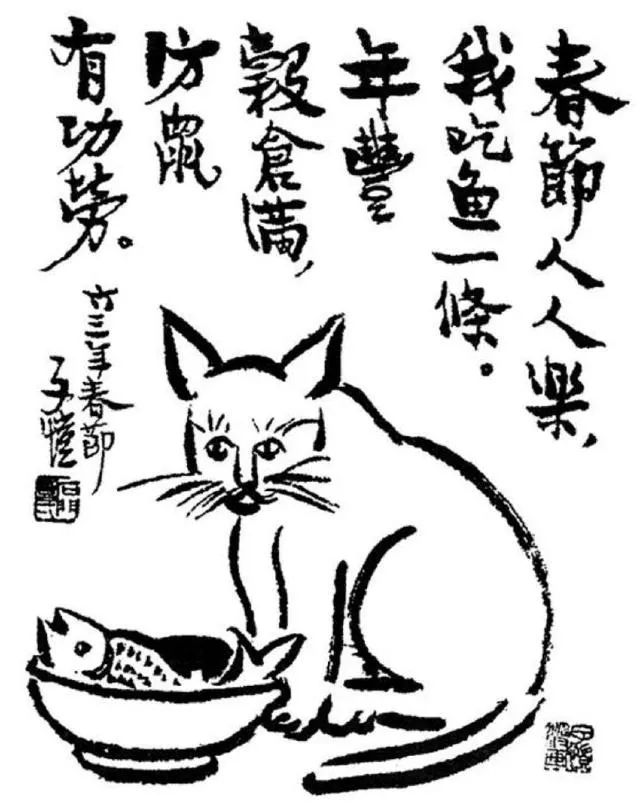 春節人人樂，
我吃鱼一條。
年豐
穀倉滿，
防鼠
有功勞。
六三年春節
子愷